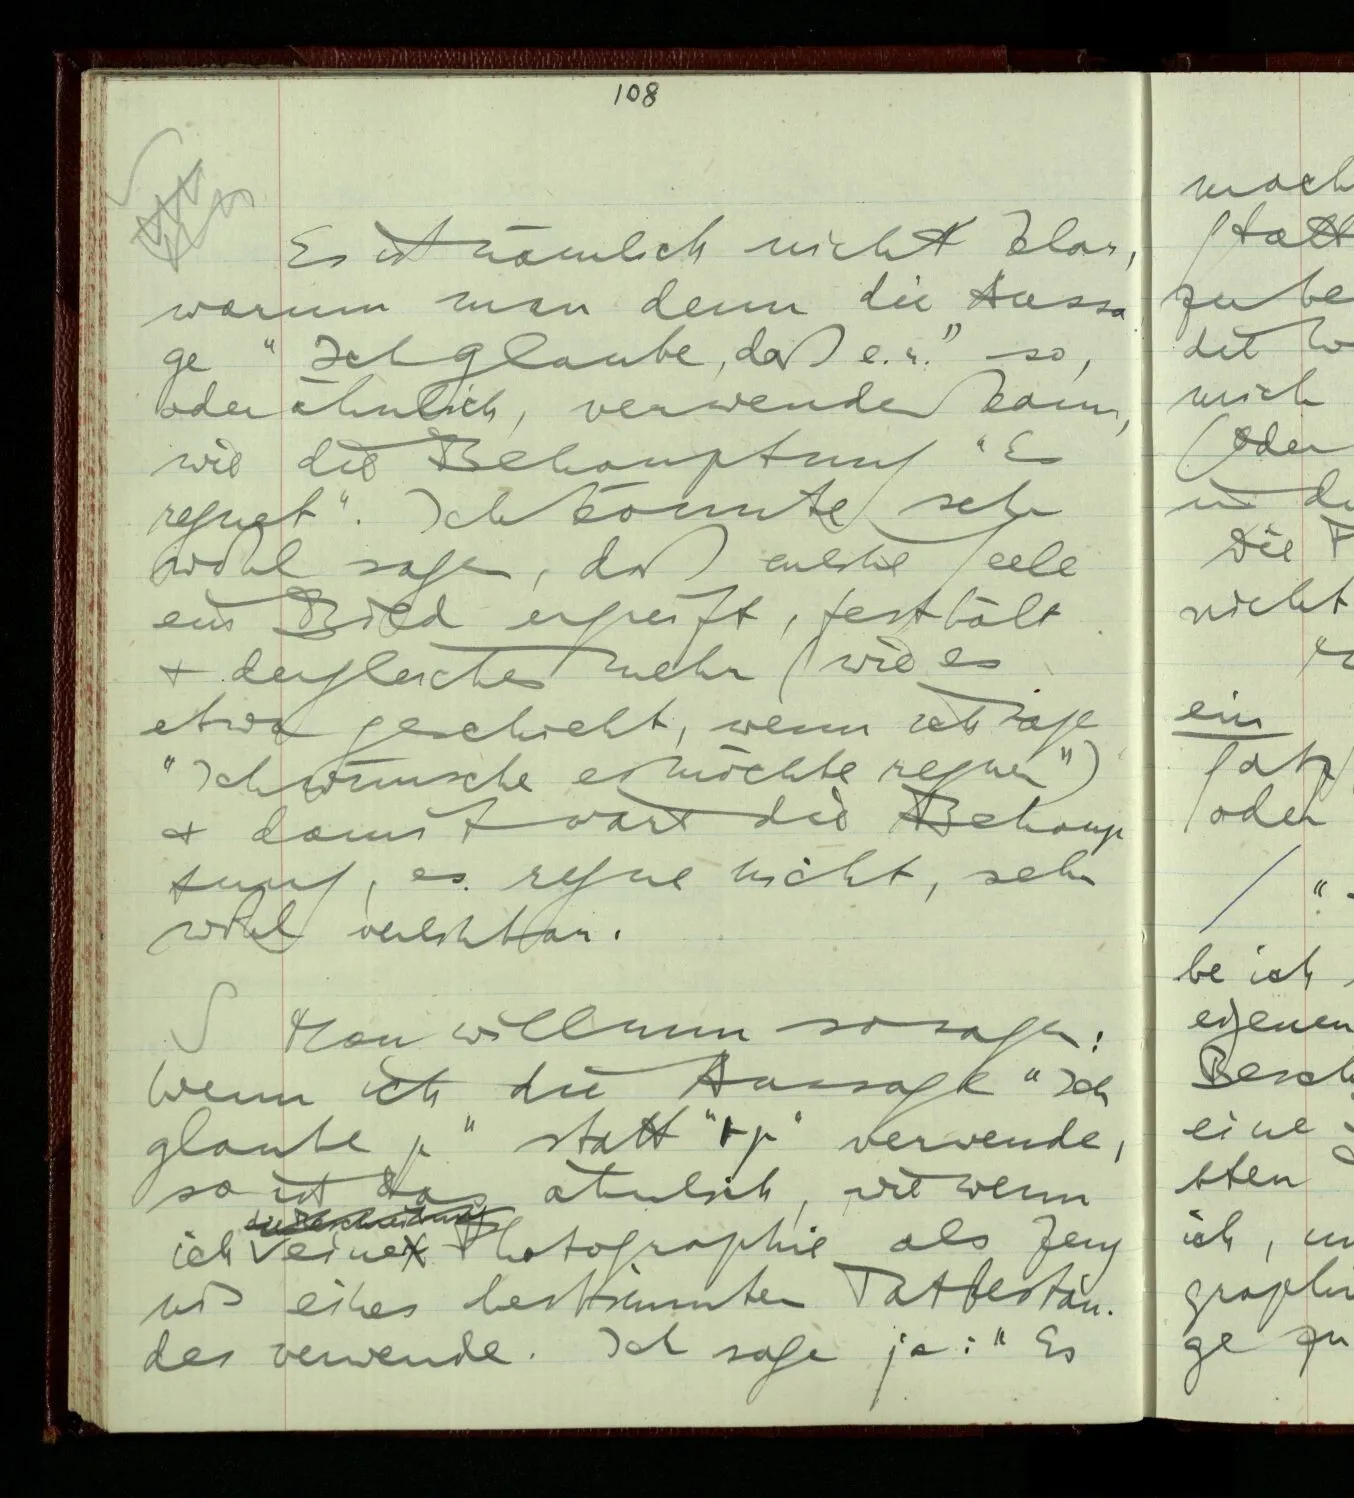 108
Es ist nämlich nicht klar,
warum man denn die Aussa
ge "Ich glaube, daß e. r." so,
oder ähnlich, verwenden kann,
wie die Behauptung "Es
regnet". Ich könnte sehr
wohl sagen, daß welche Seele
ein Bild ergreift, festhält
+ dergleichen mehr (wie es
etwa geschieht, wenn ich sage
"Ich wünsche es möchte regnen")
+ damit wäre die Behaup
tung, es regne nicht, sehr
wohl vereinbar.
∫ Man will nun so sagen:
Wenn ich die Aussage "Ich
glaube p" statt "⊢p" verwende,
so ist das ähnlich, wie wenn
ich eine Photographie als Zeug
nis eines bestimmten Tatbestan.
des verwende. Ich sage ja: "Es
mach
statt
zu be
det w
mich
(oder
in d
Die
nicht
ein
Satz
oder
/ "
be ich
eigenen
Besch
eine
sten
ich, un
graphi
ge zu